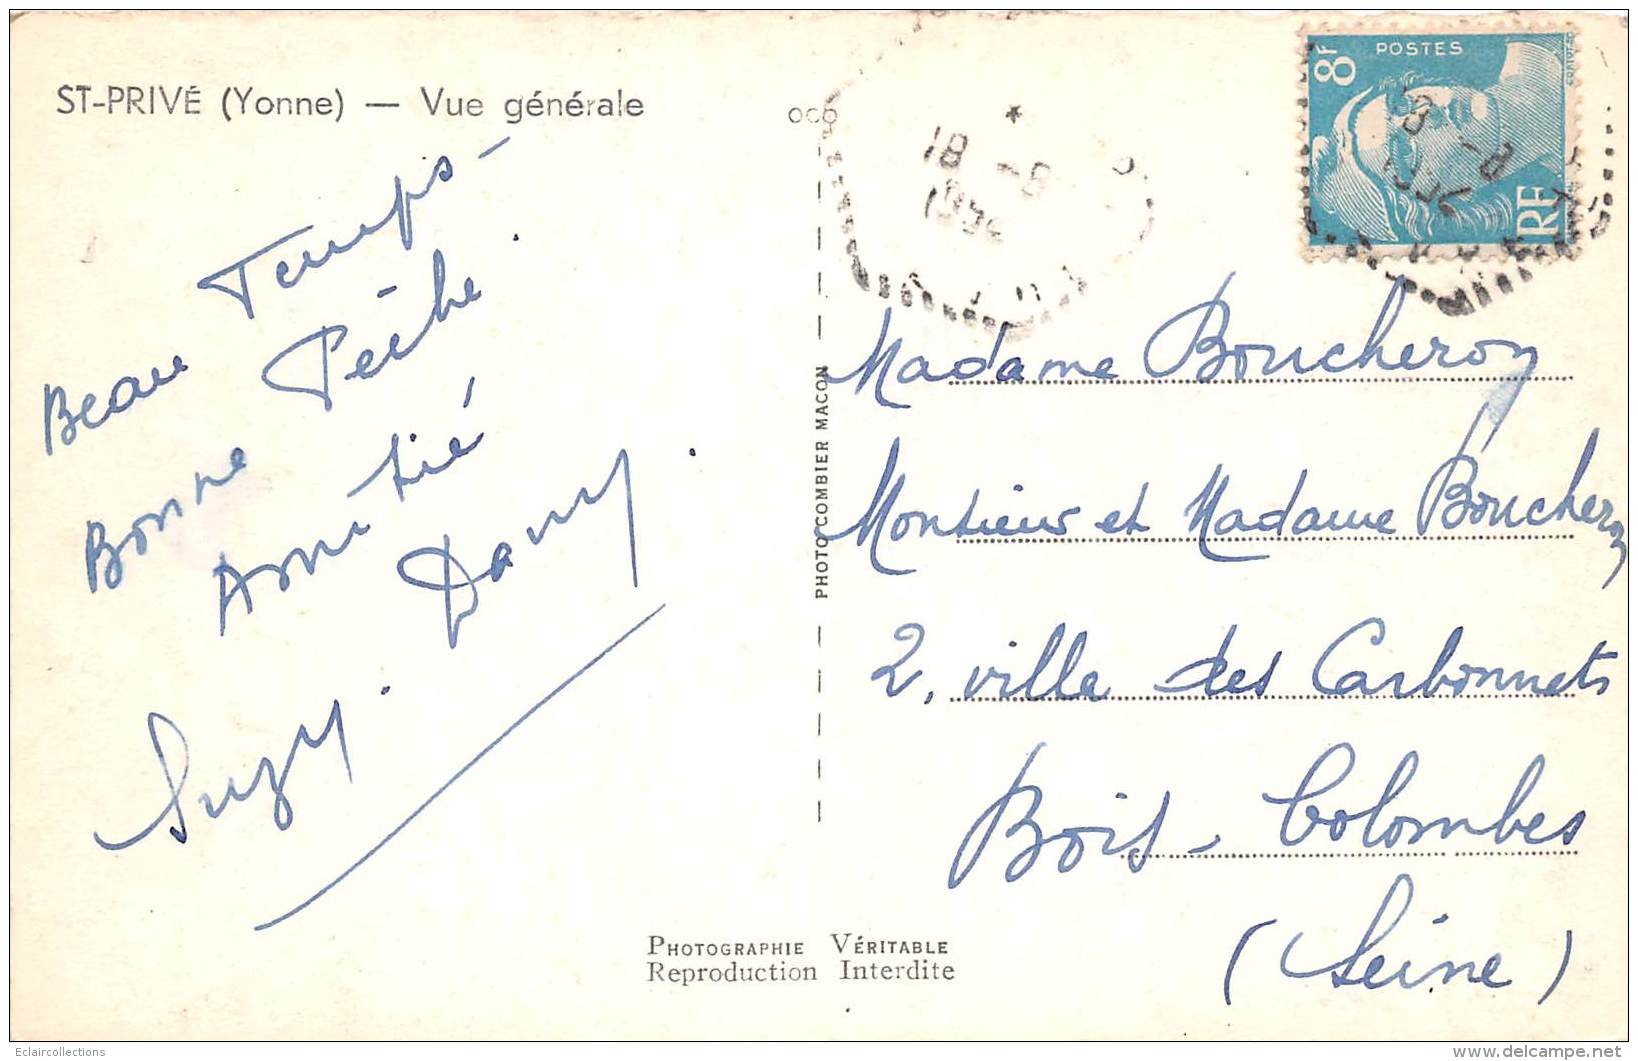 ST-PRIVÉ (Yonne) — Vue générale
Beau Temps -
Bonne Pêche.
Amitié
Dany.
Suzy.
PHOTO COMBIER MACON
POSTES
8F
RF
18 -8
18 -8
Madame Boucheron
Monsieur et Madame Boucheron
2, ville des Carbonnets
Bois - Colombes
(Seine)
PHOTOGRAPHIE VÉRITABLE
Reproduction Interdite
Eclaircollections
www.delcampe.net